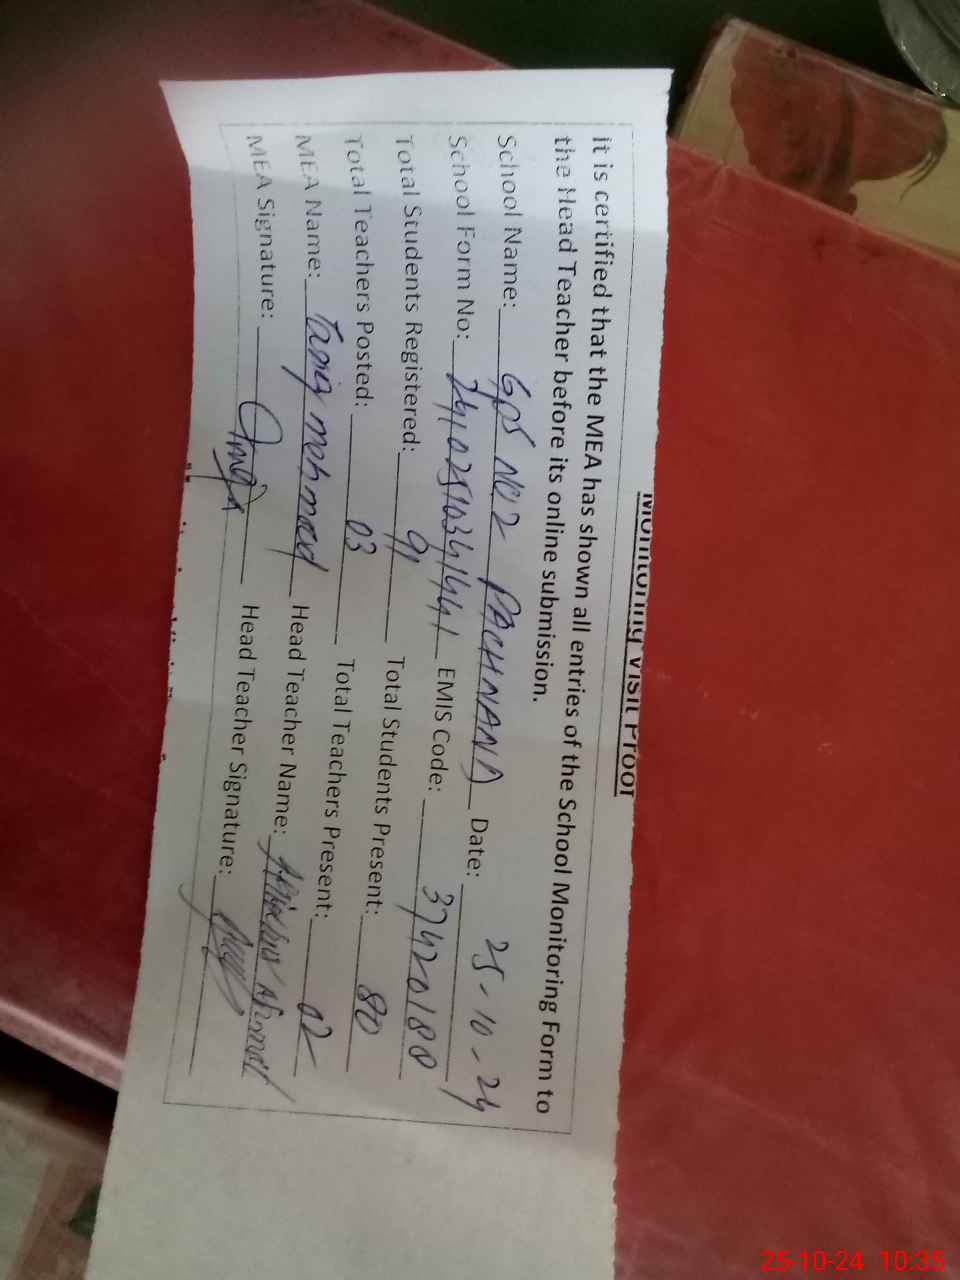 Monitoring Visit Proof
it is certified that the MEA has shown all entries of the School Monitoring Form to
the Head Teacher before its online submission.
School Name: GPS NO 2 PACHNAND Date: 25-10-24
School Form No: EMIS Code: 37420188
Total Students Registered: 91 Total Students Present: 80
Total Teachers Posted: 03 Total Teachers Present: 02
MEA Name: Tariq mehmood Head Teacher Name: Ahmad
MEA Signature: Head Teacher Signature:
25-10-24 10:35